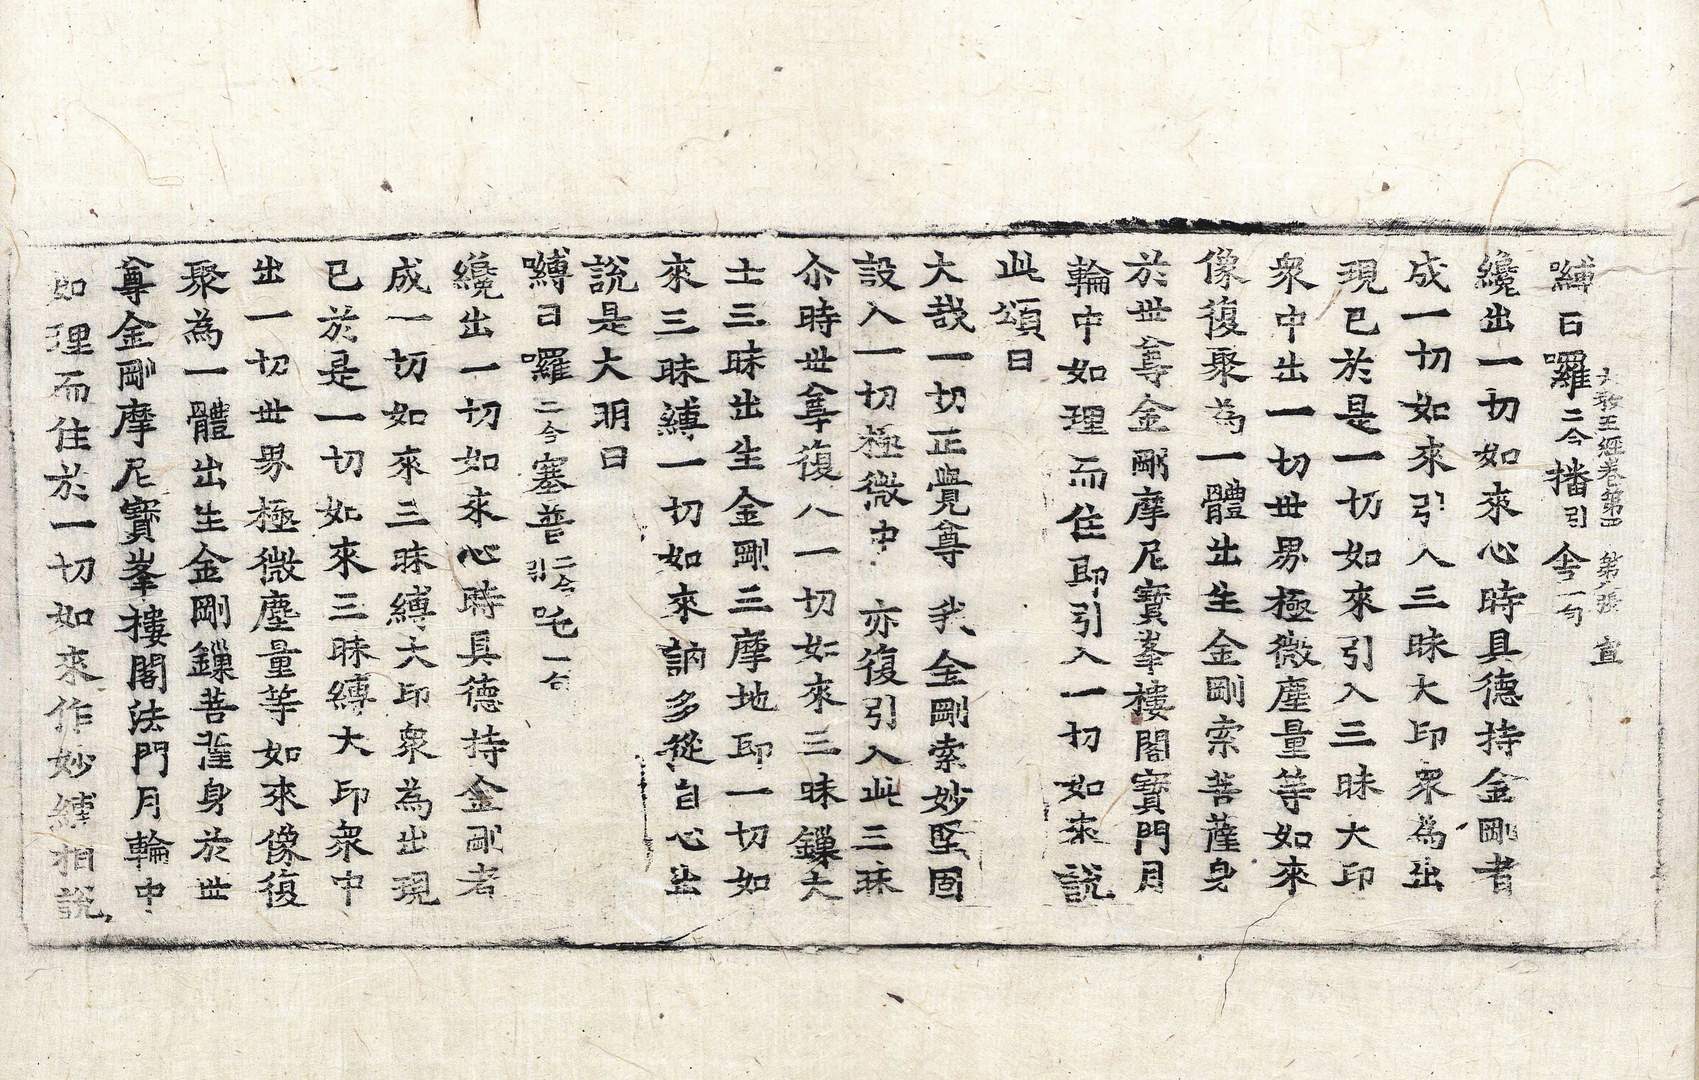 大敎王經卷第四 第八張 宣
嚩日囉二合播引舍一句
纔出一切如來心時具德持金剛者
成一切如來引入三昧大印衆為出
現已於是一切如來引入三昧大印
衆中出一切世界極微塵量等如來
像復聚為一體出生金剛索菩薩身
於世尊金剛摩尼寶峯樓閣寶門月
輪中如理而住即引入一切如來說
此頌曰
大哉一切正覺尊 我金剛索妙堅固
設入一切極微中 亦復引入此三昧
尒時世尊復入一切如來三昧鏁大
士三昧出生金剛三摩地即一切如
來三昧縛一切如來訥多從自心出
說是大明曰
嚩日囉二合塞普二合引吒一句
纔出一切如來心時具德持金剛者
成一切如來三昧縛大印衆為出現
已於是一切如來三昧縛大印衆中
出一切世界極微塵量等如來像復
聚為一體出生金剛鏁菩薩身於世
尊金剛摩尼寶峯樓閣法門月輪中
如理而住於一切如來作妙縛相說